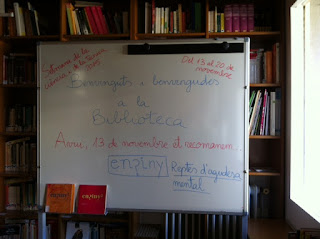 Setmana de la
Ciència
Del 13 al 20 de
novembre
Benvinguts i benvingudes
a la
Biblioteca
Avui, 13 de novembre et recomanem...
enginy
Reptes d'agudesa
mental